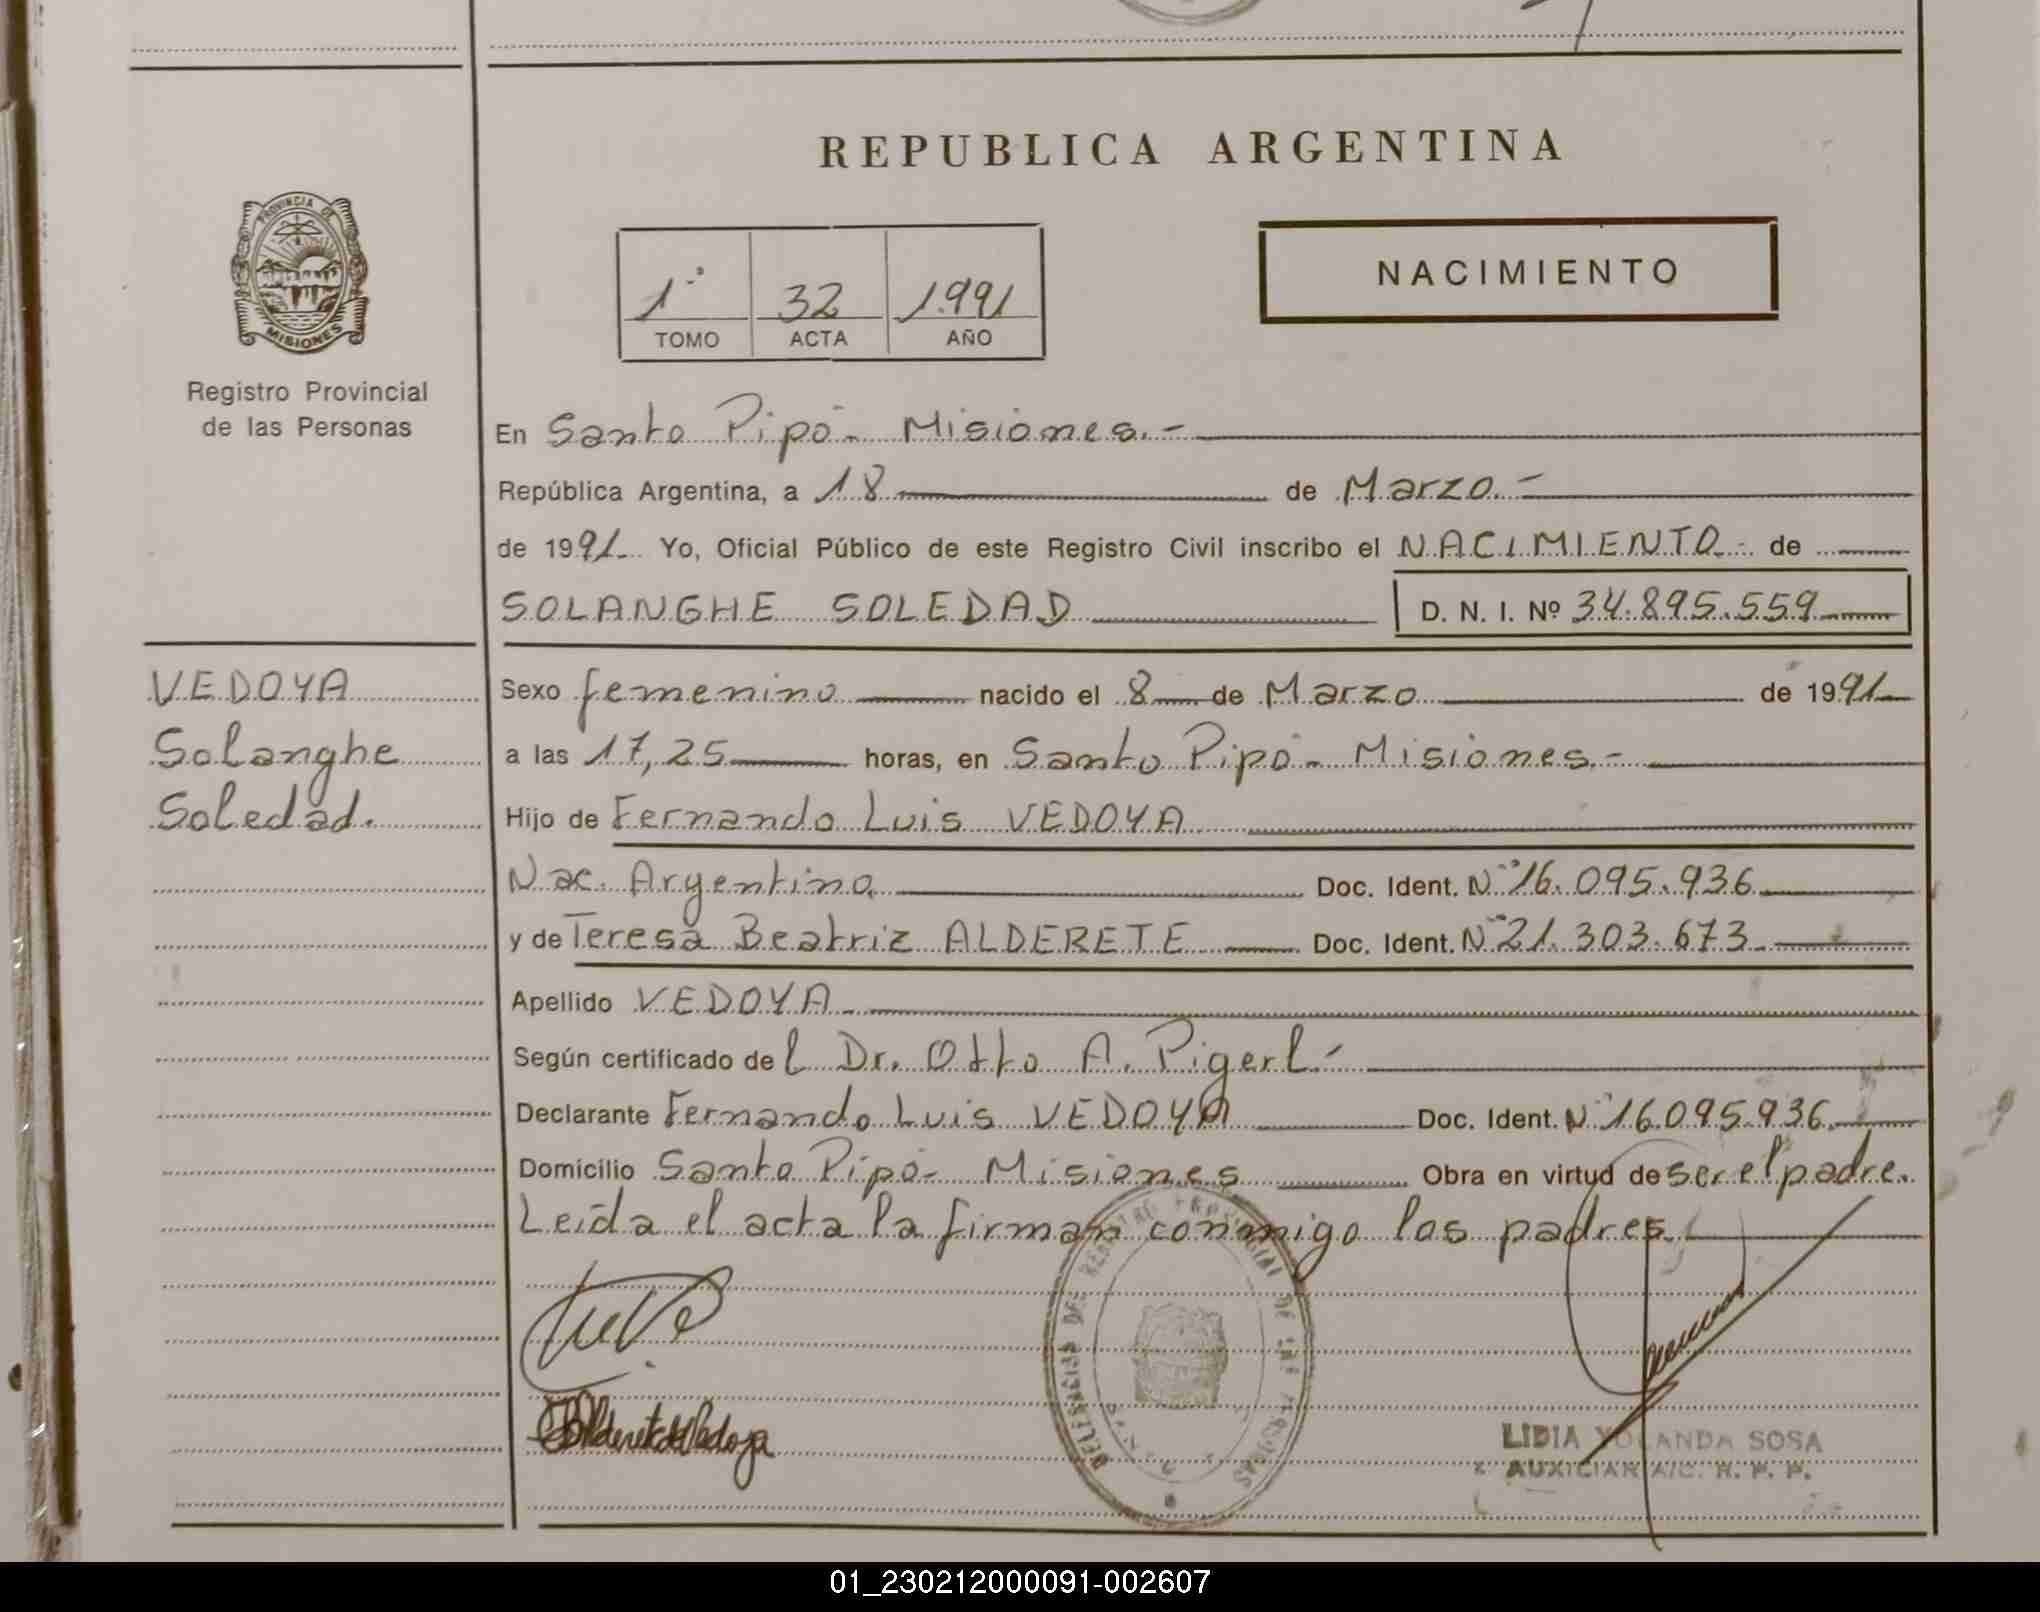 REPUBLICA ARGENTINA
PROVINCIA DE
MISIONES
Registro Provincial
de las Personas
1º 32 1.991
TOMO ACTA AÑO
NACIMIENTO
En Santo Pipó - Misiones.-
República Argentina, a 18 de Marzo.-
de 1991.. Yo, Oficial Público de este Registro Civil inscribo el NACIMIENTO.- de
SOLANGHE SOLEDAD D. N. I. Nº 34.895.559
VEDOYA
Solanghe
Soledad.
Sexo femenino nacido el 8 de Marzo de 1991
a las 17,25 horas, en Santo Pipó - Misiones.-
Hijo de Fernando Luis VEDOYA
Nac. Argentina Doc. Ident. Nº 16.095.936
y de Teresa Beatriz ALDERETE Doc. Ident. Nº 21.303.673
Apellido VEDOYA
Según certificado del Dr. Otto A. Pigerl.-
Declarante Fernando Luis VEDOYA Doc. Ident. Nº 16.095.936
Domicilio Santo Pipó - Misiones Obra en virtud de ser el padre.
Leída el acta la firman conmigo los padres.
DELEGACION DEL REGISTRO PROVINCIAL DE LAS PERSONAS
LIDIA YOLANDA SOSA
AUXILIAR A/C. R. P. P.
01_230212000091-002607